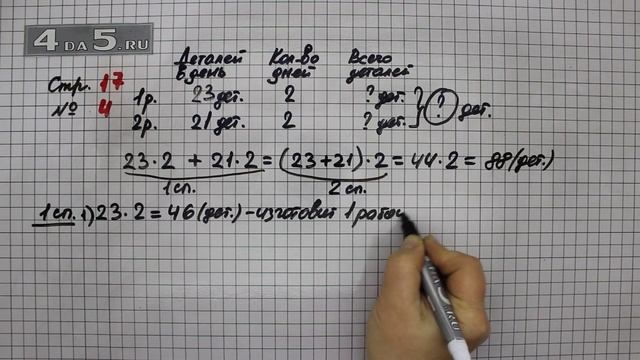 4DA5.RU
Деталей в день Кол-во дней Всего деталей
Стр. 17
№ 4
1р. 23 дет. 2 ? дет.
2р. 21 дет. 2 ? дет.
? дет.
23·2 + 21·2 = (23+21)·2 = 44·2 = 88 (дет.)
1 сп. 2 сп.
1 сп. 1) 23·2 = 46 (дет.) - изготовит 1 рабоч